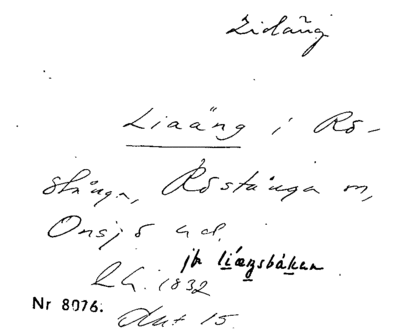 Lidäng
Liaäng i Rö-
stånga, Röstånga sn,
Onsjö hd.
jfr liængsbakan
LU. 1832
Nr 8076.
Akt 15.